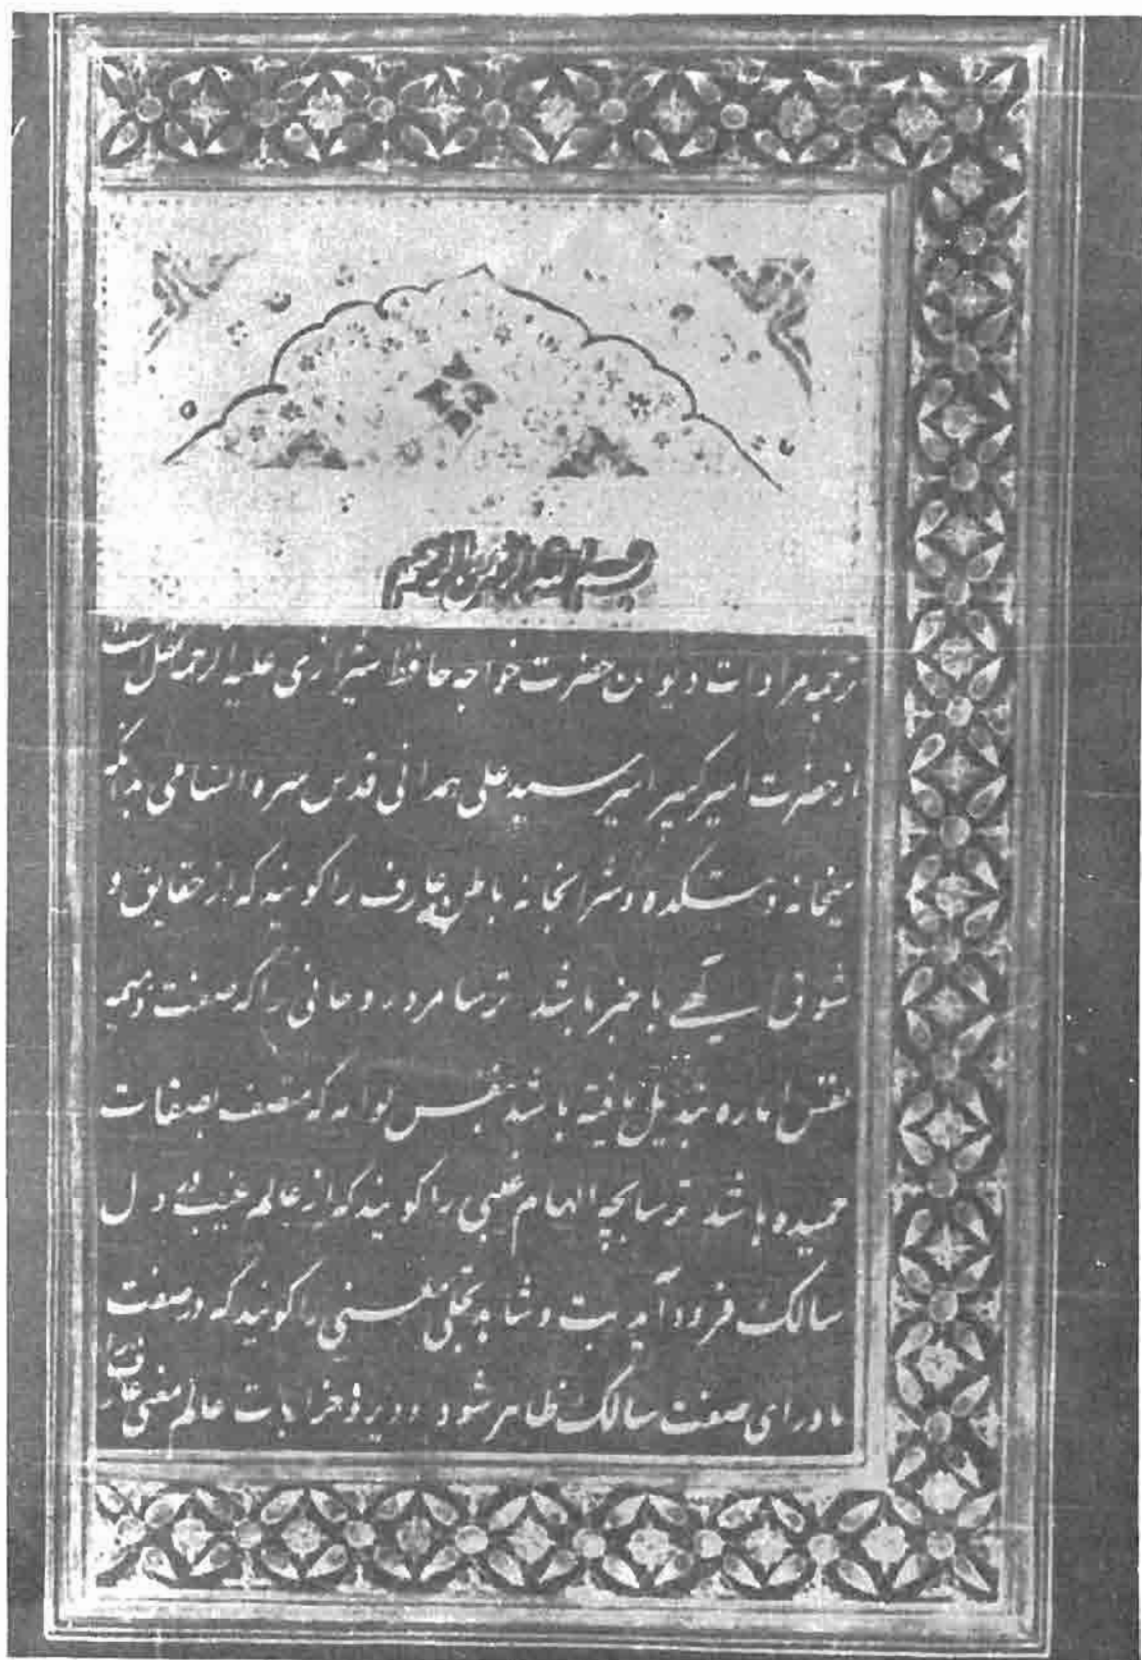 بسم الله الرحمن الرحیم
ترجمه مرادات دیوان حضرت خواجه حافظ شیرازی علیه الرحمه نقل است
از حضرت امیر کبیر امیر سید علی همدانی قدس سره السامی بدانکه
میخانه و بتکده و شرابخانه باطن عارف را کویند که از حقایق و
شوق با خبر باشد ترسا مرد روحانی را که صفت ذمیمه
نفس اماره تبدیل یافته باشد بنفس لوامه که متصف بصفات
حمیده باشد ترسابچه الهام غیبی را کویند که از عالم غیب در دل
سالک فرود آید بت و شاهد تجلی معنی را کویند که در صفت
ماورای صفت سالک ظاهر شود و دیر و خرابات عالم معنی عارف